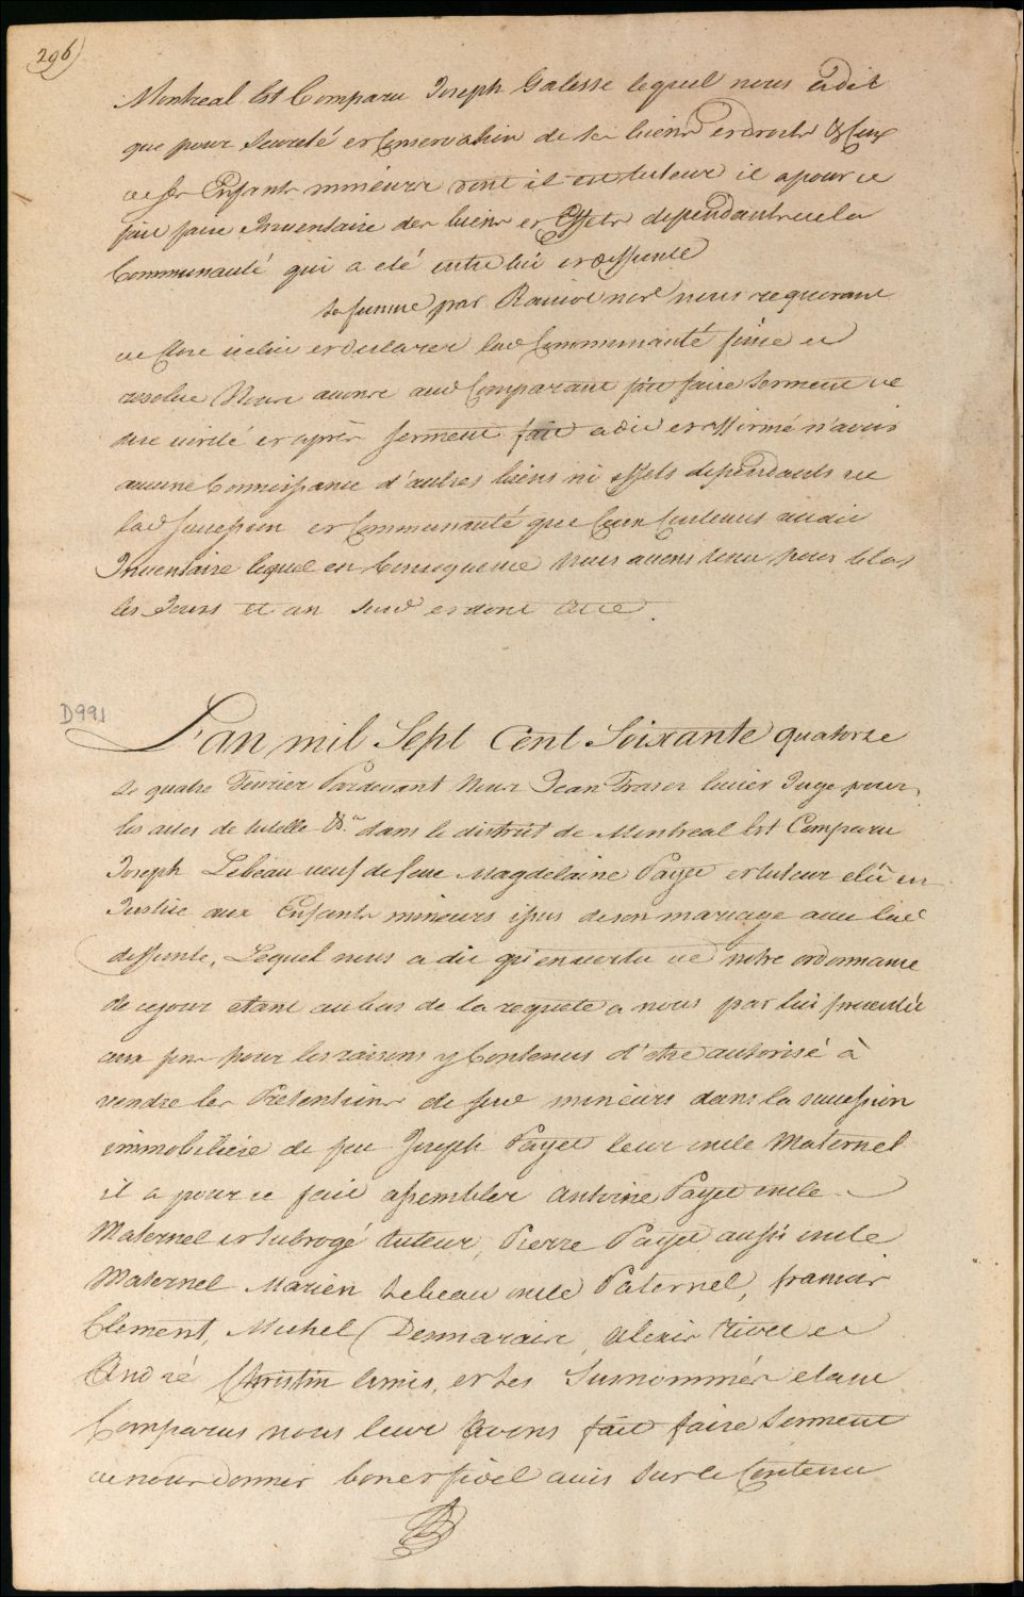 296)
Montreal Est Comparu Joseph Galesse lequel nous a dit
que pour Sureté et Conservation de ses biens et droits & Ceux
de ses Enfants mineurs dont il est tuteur il a pour ce
fait faire Inventaire des biens et Effets dependants de la
Communauté qui a eté entre lui et deffunte
sa femme par notre nous requerant
de Clore icelui et declarer lad Communauté finie et
resolue Nous avons aud Comparant fait faire serment de
dire verité et après serment fait a dit et affirmé n'avoir
aucune Connoissance d'autres biens ni effets dependants de
lad Succession et Communauté que Ceux Contenus audit
Inventaire lequel en Consequence Nous avons tenu pour Clos
les Jours et an Susd et dont Acte.
D991
L'an mil Sept Cent Soixante quatorze
le quatre Fevrier Pardevant Nous Jean Fraser Ecuier Juge pour
les actes de tutelle &ca dans le district de Montreal Est Comparu
Joseph Lebeau veuf de feue Magdelaine Payet et tuteur elû en
Justice aux Enfants mineurs issus de son mariage avec lad
deffunte, Lequel nous a dit qu'en vertu de notre ordonnance
de ce jour etant au bas de la requete a nous par lui presentée
aux fins pour les raisons y Contenus d'etre autorisé à
vendre les Pretentions de sesd mineurs dans la succession
immobiliere de feu Joseph Payet leur oncle Maternel
il a pour ce fait assembler Antoine Payet oncle
Maternel et subrogé tuteur, Pierre Payet aussi oncle
Maternel Marien Lebeau oncle Paternel, francois
Clement, Michel Desmarais, Alexis et
André Christin amis, et les Susnommés etant
Comparus nous leur avons fait faire serment
de nous donner bon et fidel avis sur le Contenu